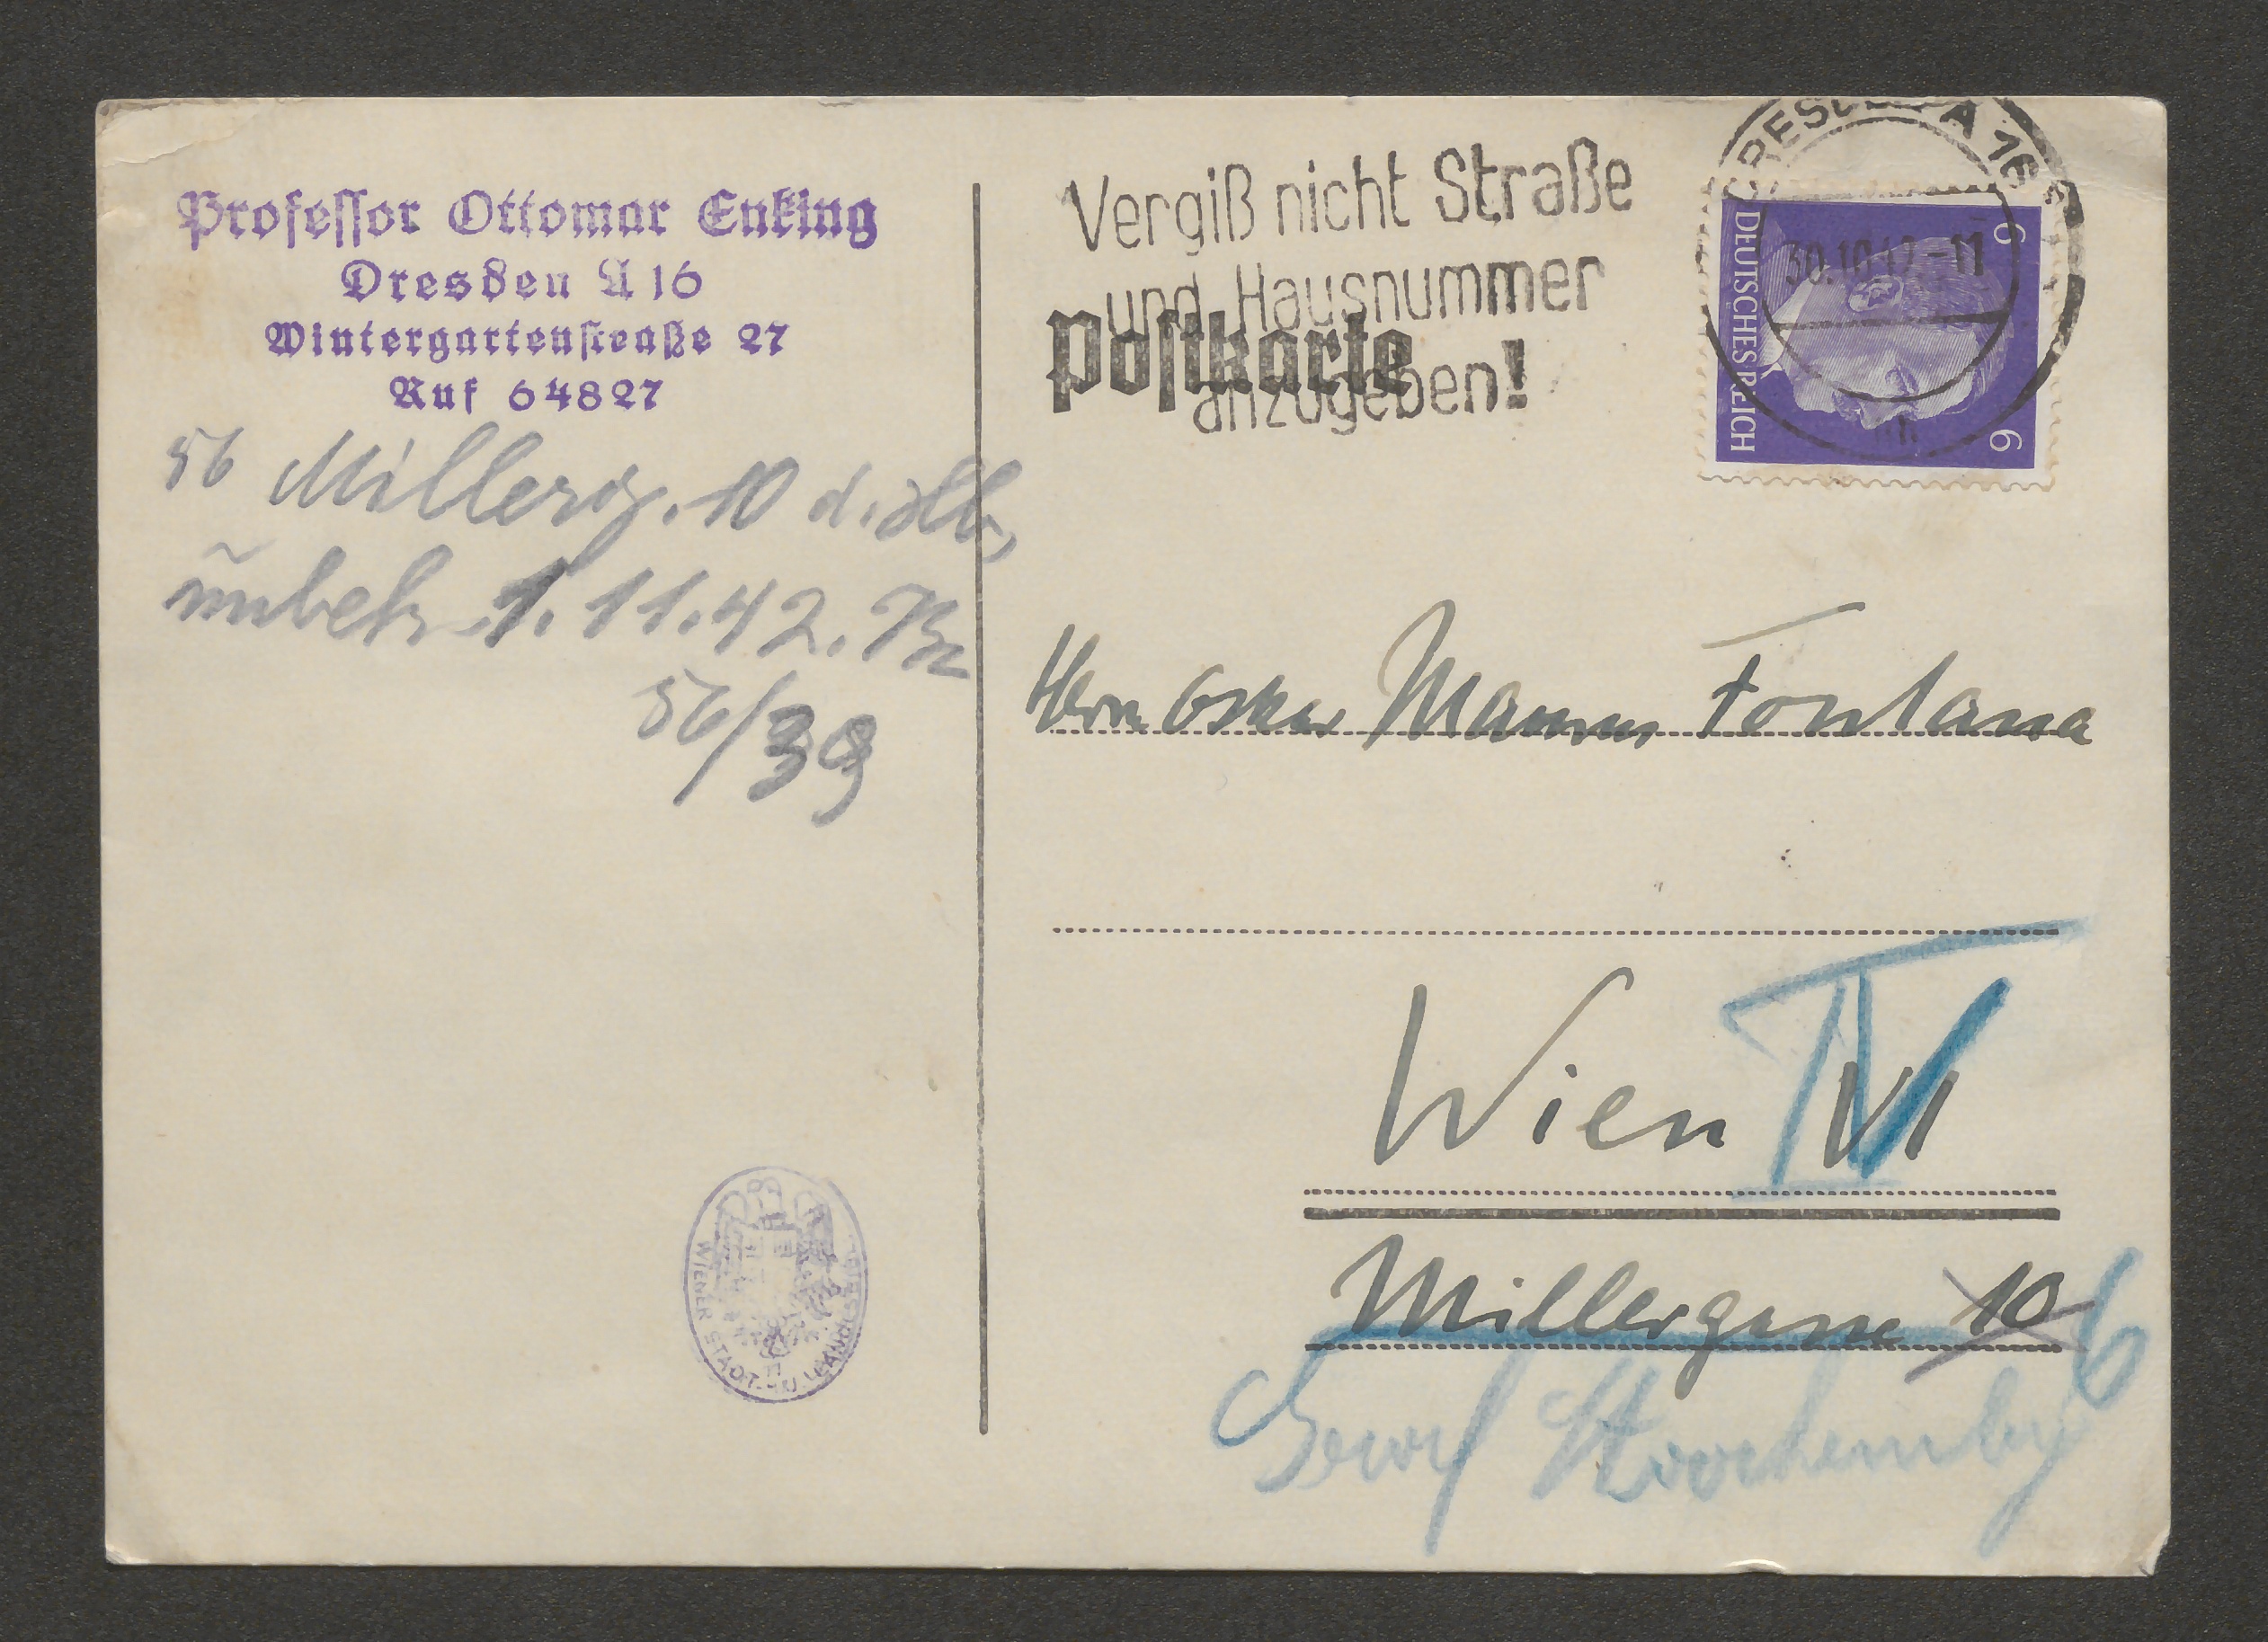 Professor Ottomar Enking
Dresden A 16
Wintergartenstraße 27
Ruf 64827
56 Millerg. 10 d. Alb,
unbek. 1.11.42.
56/39
Vergiß nicht Straße
und Hausnummer
anzugeben!
Postkarte
DRESDEN A 16
30.10.42.-11
DEUTSCHES REICH
6
6
Herrn Oskar Maurus Fontana
Wien VI
IV
Millergasse 10
6
WIENER STADT- U.